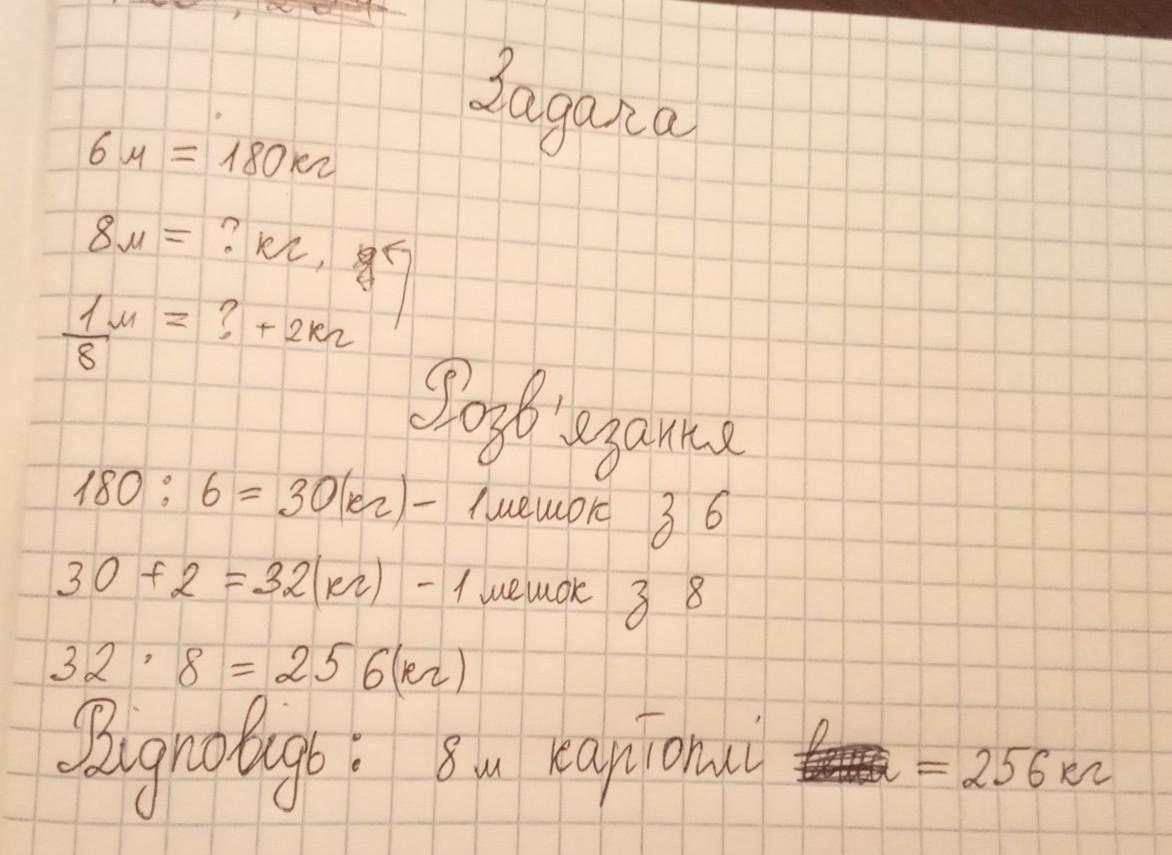 Задача
6 м = 180кг
8м = ? кг,
1/8 м = ? + 2кг
Розв'язання
180 : 6 = 30(кг) - 1 мешок з 6
30 + 2 = 32(кг) - 1 мешок з 8
32 · 8 = 256(кг)
Відповідь: 8 м картоплі = 256 кг